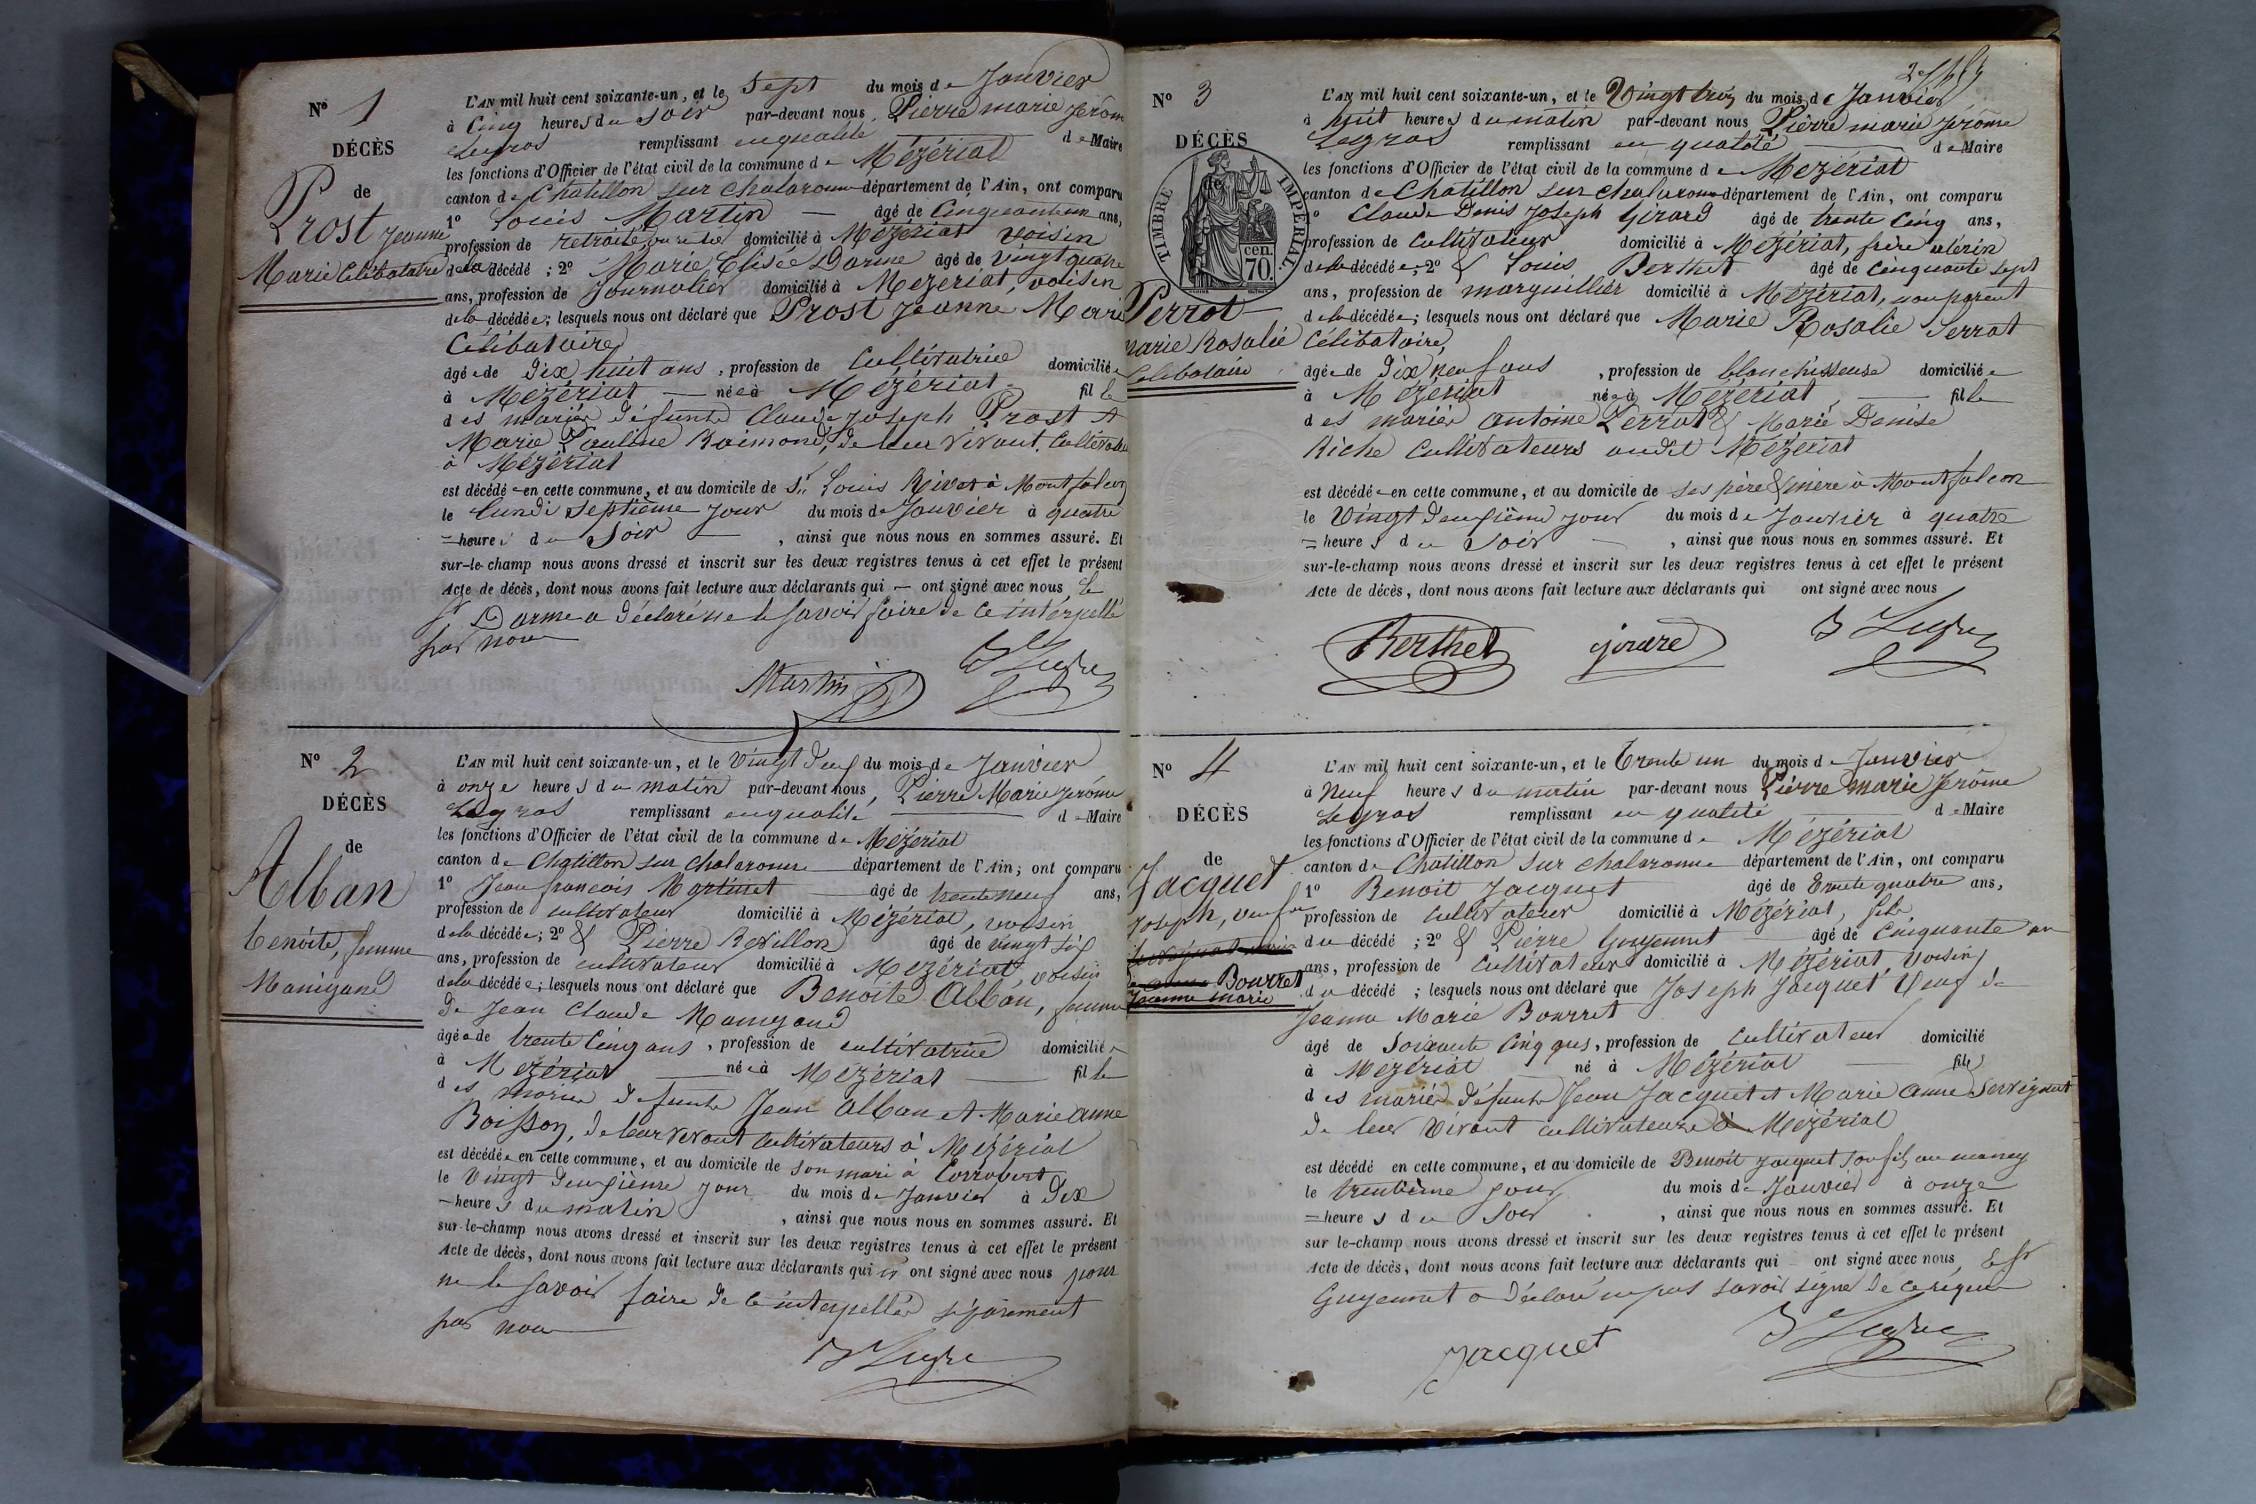 N° 1
DÉCÈS
de
Prost Jeanne
Marie Célibataire
L'AN mil huit cent soixante-un, et le Sept du mois de Janvier
à Cinq heures du soir par-devant nous, Pierre marie Jerôme
Legros remplissant en qualité de Maire
les fonctions d'Officier de l'état civil de la commune de Mézériat
canton de Chatillon sur chalaronne département de l'Ain, ont comparu
1° Louis Martin âgé de Cinquante ans,
profession de retraité domicilié à Mézériat voisin
de la décédé ; 2° Marie Elisée Darme âgé de vingt quatre
ans, profession de Journalier domicilié à Mezeriat, voisin
de la décédée; lesquels nous ont déclaré que Prost Jeanne Marie
Célibataire
âgée de Dix huit ans, profession de Cultivatrice domiciliée
à Mézériat née à Mézériat fille
des mariés défunts Claude Joseph Prost et
Marie Pauline Raimond, de leur vivant Cultivateurs
à Mézériat
est décédée en cette commune, et au domicile de Sr Louis Rivet à Montfalcon
le lundi septième jour du mois de Janvier à quatre
= heures du Soir, ainsi que nous nous en sommes assuré. Et
sur-le-champ nous avons dressé et inscrit sur les deux registres tenus à cet effet le présent
Acte de décès, dont nous avons fait lecture aux déclarants qui — ont signé avec nous, le
Sr Darme a déclaré ne le savoir faire de ce interpellé
par nous
Martin B Legros
N° 2
DÉCÈS
de
Alban
benoite, femme
Manigand
L'AN mil huit cent soixante-un, et le Vingt deux du mois de Janvier
à onze heures du matin par-devant nous, Pierre Marie Jerôme
Legros remplissant en qualité de Maire
les fonctions d'Officier de l'état civil de la commune de Mézériat
canton de Chatillon sur chalaronne département de l'Ain; ont comparu
1° Jean francois Martinet âgé de trente neuf ans,
profession de cultivateur domicilié à Mézériat, voisin
de la décédée; 2° & Pierre Revillon âgé de vingt six
ans, profession de cultivateur domicilié à Mezériat, voisin
de la décédée; lesquels nous ont déclaré que Benoite Alban, femme
de Jean Claude Manigand
âgée de trente Cinq ans, profession de cultivatrice domiciliée
à Mézériat née à Mezériat fille
des mariés defunts Jean Alban et Marie Anne
Boisson, de leur vivant Cultivateurs à Mézériat
est décédée en cette commune, et au domicile de son mari à Corrobert
le Vingt deuxieme jour du mois de Janvier à Dix
= heures du matin, ainsi que nous nous en sommes assuré. Et
sur-le-champ nous avons dressé et inscrit sur les deux registres tenus à cet effet le présent
Acte de décès, dont nous avons fait lecture aux déclarants qui ont signé avec nous pour
ne le savoir faire de ce interpellés séparément
par nous
B Legros
N° 3
DÉCÈS
de
TIMBRE IMPERIAL.
cen.
70.
Perrat
marie Rosalie
Celibataire
L'AN mil huit cent soixante-un, et le Vingt trois du mois de Janvier
à huit heures du matin par-devant nous Pierre marie Jerôme
Legros remplissant en qualité de Maire
les fonctions d'Officier de l'état civil de la commune de Mezériat
canton de Chatillon sur chalaronne département de l'Ain, ont comparu
1° Claude Denis Joseph Girard âgé de trente Cinq ans,
profession de Cultivateur domicilié à Mézériat, frère utérin
de la décédée; 2° & Louis Berthet âgé de cinquante sept
ans, profession de marguillier domicilié à Mézériat, non parent
de la décédée; lesquels nous ont déclaré que Marie Rosalie Perrat
Célibataire,
âgée de Dix neuf ans, profession de blanchisseuse domiciliée
à Mézériat née à Mézériat, fille
des mariés antoine Perrat & Marie Denise
Riche Cultivateurs audit Mézériat
est décédée en cette commune, et au domicile de ses père & mère à Montfalcon
le Vingt deuxième jour du mois de Janvier à quatre
= heures du Soir, ainsi que nous nous en sommes assuré. Et
sur-le-champ nous avons dressé et inscrit sur les deux registres tenus à cet effet le présent
Acte de décès, dont nous avons fait lecture aux déclarants qui ont signé avec nous
Berthet girard B Legros
N° 4
DÉCÈS
de
Jacquet
Joseph, veuf de
Bourret
Jeanne marie
L'AN mil huit cent soixante-un, et le Trente un du mois de Janvier
à Neuf heures du matin par-devant nous Pierre marie Jerôme
Legros remplissant en qualité de Maire
les fonctions d'Officier de l'état civil de la commune de Mézériat
canton de Chatillon sur chalaronne département de l'Ain, ont comparu
1° Benoit Jacquet âgé de Trente quatre ans,
profession de Cultivateur domicilié à Mézériat, fils
du décédé ; 2° & Pierre Guyennet âgé de Cinquante un
ans, profession de Cultivateur domicilié à Mézériat, voisin
du décédé ; lesquels nous ont déclaré que Joseph Jacquet Veuf de
Jeanne Marie Bourret
âgé de Soixante Cinq ans, profession de Cultivateur domicilié
à Mezériat né à Mézériat fils
des mariés défunts Jean Jacquet et Marie Anne Servignat
de leur Vivant cultivateurs à Mézériat
est décédé en cette commune, et au domicile de Benoit Jacquet son fils au
le trentième jour du mois de Janvier à onze
= heures du Soir, ainsi que nous nous en sommes assuré. Et
sur le-champ nous avons dressé et inscrit sur les deux registres tenus à cet effet le présent
Acte de décès, dont nous avons fait lecture aux déclarants qui ont signé avec nous, le Sr
Guyennet a déclaré ne pas savoir signé de ce requis
Jacquet B Legros